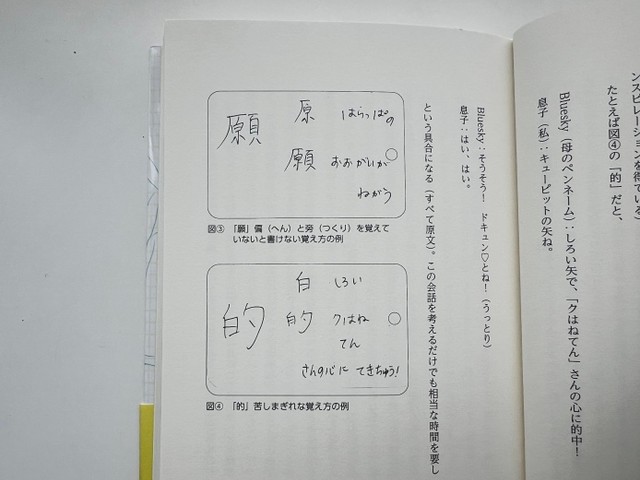 ンスピレーションを得ている)
たとえば図④の「的」だと、
Bluesky(母のペンネーム):しろい矢で、「クはねてん」さんの心に的中!
息子(私):キューピットの矢ね。
Bluesky:そうそう! ドキュン♡とね!(うっとり)
息子:はい、はい。
という具合になる(すべて原文)。この会話を考えるだけでも相当な時間を要し
願
原 はらっぱの
願 おおがいが
ねがう
図③ 「願」偏(へん)と旁(つくり)を覚えて
いないと書けない覚え方の例
的
白 しろい
的 クはね
てん
さんの心に てきちゅう!
図④ 「的」苦しまぎれな覚え方の例